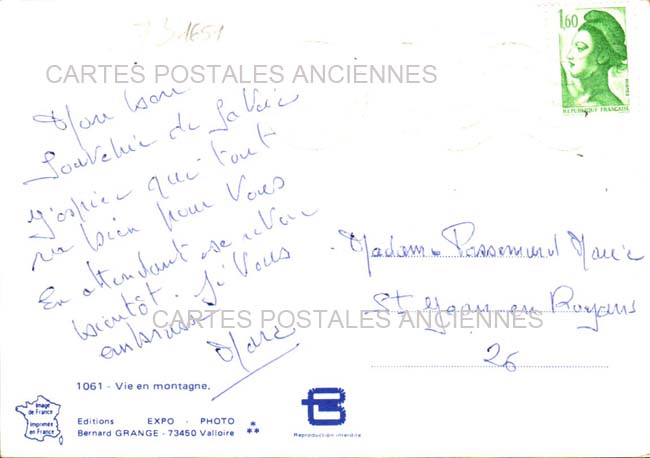 731651
1,60
POSTES
REPUBLIQUE FRANÇAISE
CARTES POSTALES ANCIENNES
Mon bon
Souvenir de Savoie
J'espère que tout
va bien pour Vous
En attendant se revoir
bientôt. Je Vous
embrasse
CARTES POSTALES ANCIENNES
Marie
Madame Marie
St Jean en Royans
26
1061 - Vie en montagne.
Image
de France
Imprimée
en France
Editions EXPO - PHOTO
Bernard GRANGE - 73450 Valloire
Reproduction interdite